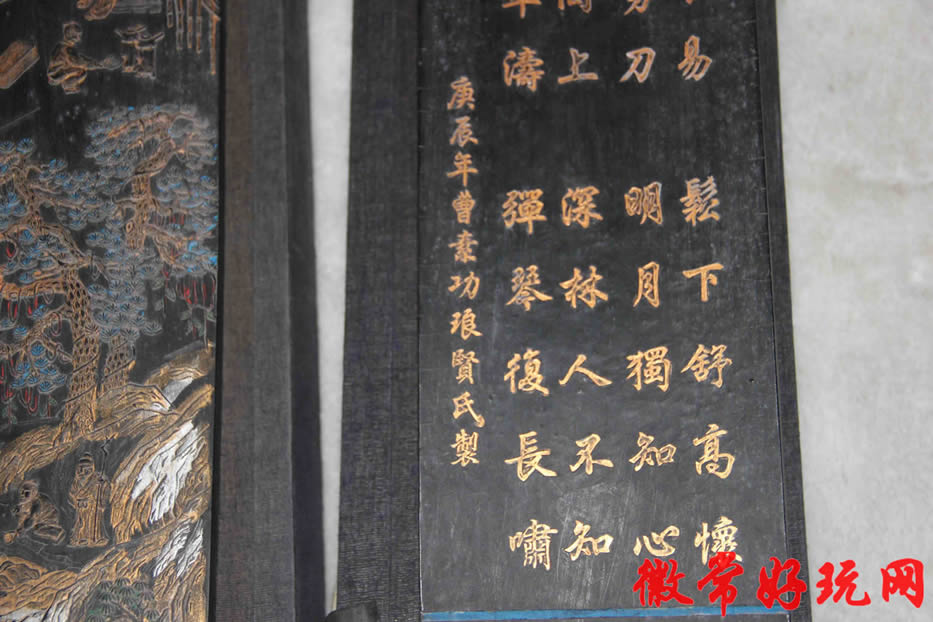 易 鬆下舒高懷
刀 明月獨知心
上 深林人不知
濤 彈琴復長嘯
庚辰年曹素功琅賢氏製
徽常好玩网